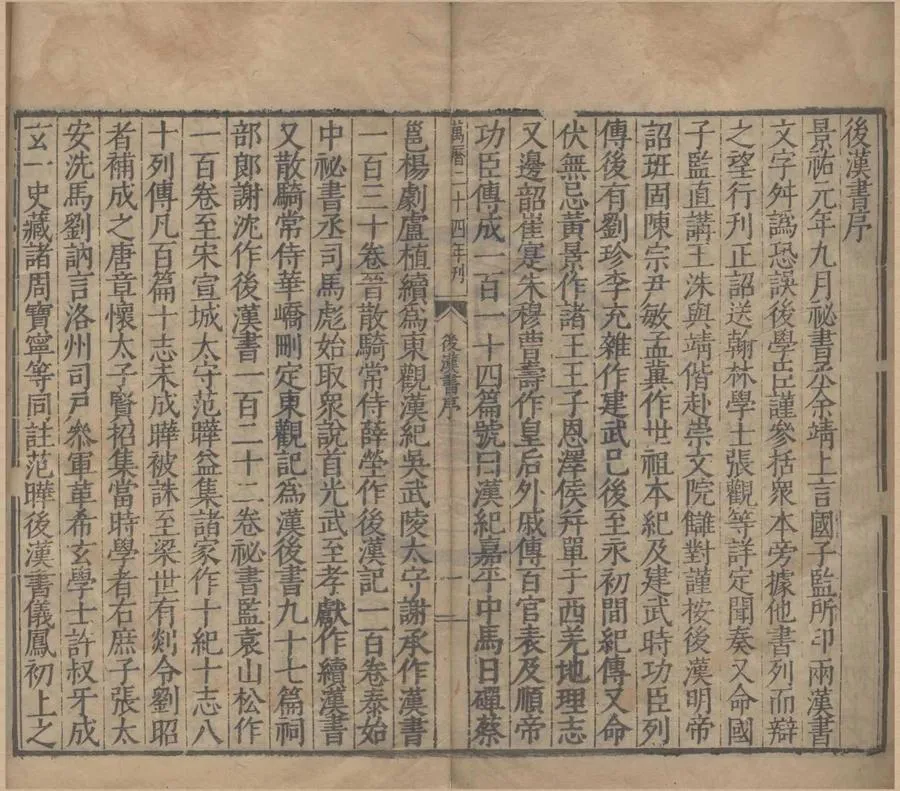 後漢書序
景祐元年九月祕書丞余靖上言國子監所印兩漢書
文字舛譌恐誤後學臣謹參括衆本旁據他書列而辯
之望行刊正詔送翰林學士張觀等詳定聞奏又命國
子監直講王洙與靖偕赴崇文院讎對謹按後漢明帝
詔班固陳宗尹敏孟冀作世祖本紀及建武時功臣列
傳後有劉珍李充雜作建武已後至永初間紀傳又命
伏無忌黃景作諸王王子恩澤侯并單于西羌地理志
又邊韶崔寔朱穆曹壽作皇后外戚傳百官表及順帝
功臣傳成一百一十四篇號曰漢紀嘉平中馬日磾蔡
萬曆二十四年刊
後漢書序
一
邕楊劇盧植續爲東觀漢紀吳武陵太守謝承作漢書
一百三十卷晉散騎常侍薛瑩作後漢記一百卷泰始
中祕書丞司馬彪始取衆說首光武至孝獻作續漢書
又散騎常侍華嶠刪定東觀記爲漢後書九十七篇祠
部郎謝沈作後漢書一百二十二卷祕書監袁山松作
一百卷至宋宣城太守范曄益集諸家作十紀十志八
十列傳凡百篇十志未成曄被誅至梁世有剡令劉昭
者補成之唐章懷太子賢招集當時學者右庶子張太
安洗馬劉訥言洛州司戶叅軍革希玄學士許叔牙成
玄一史藏諸周寶寧等同註范曄後漢書儀鳳初上之